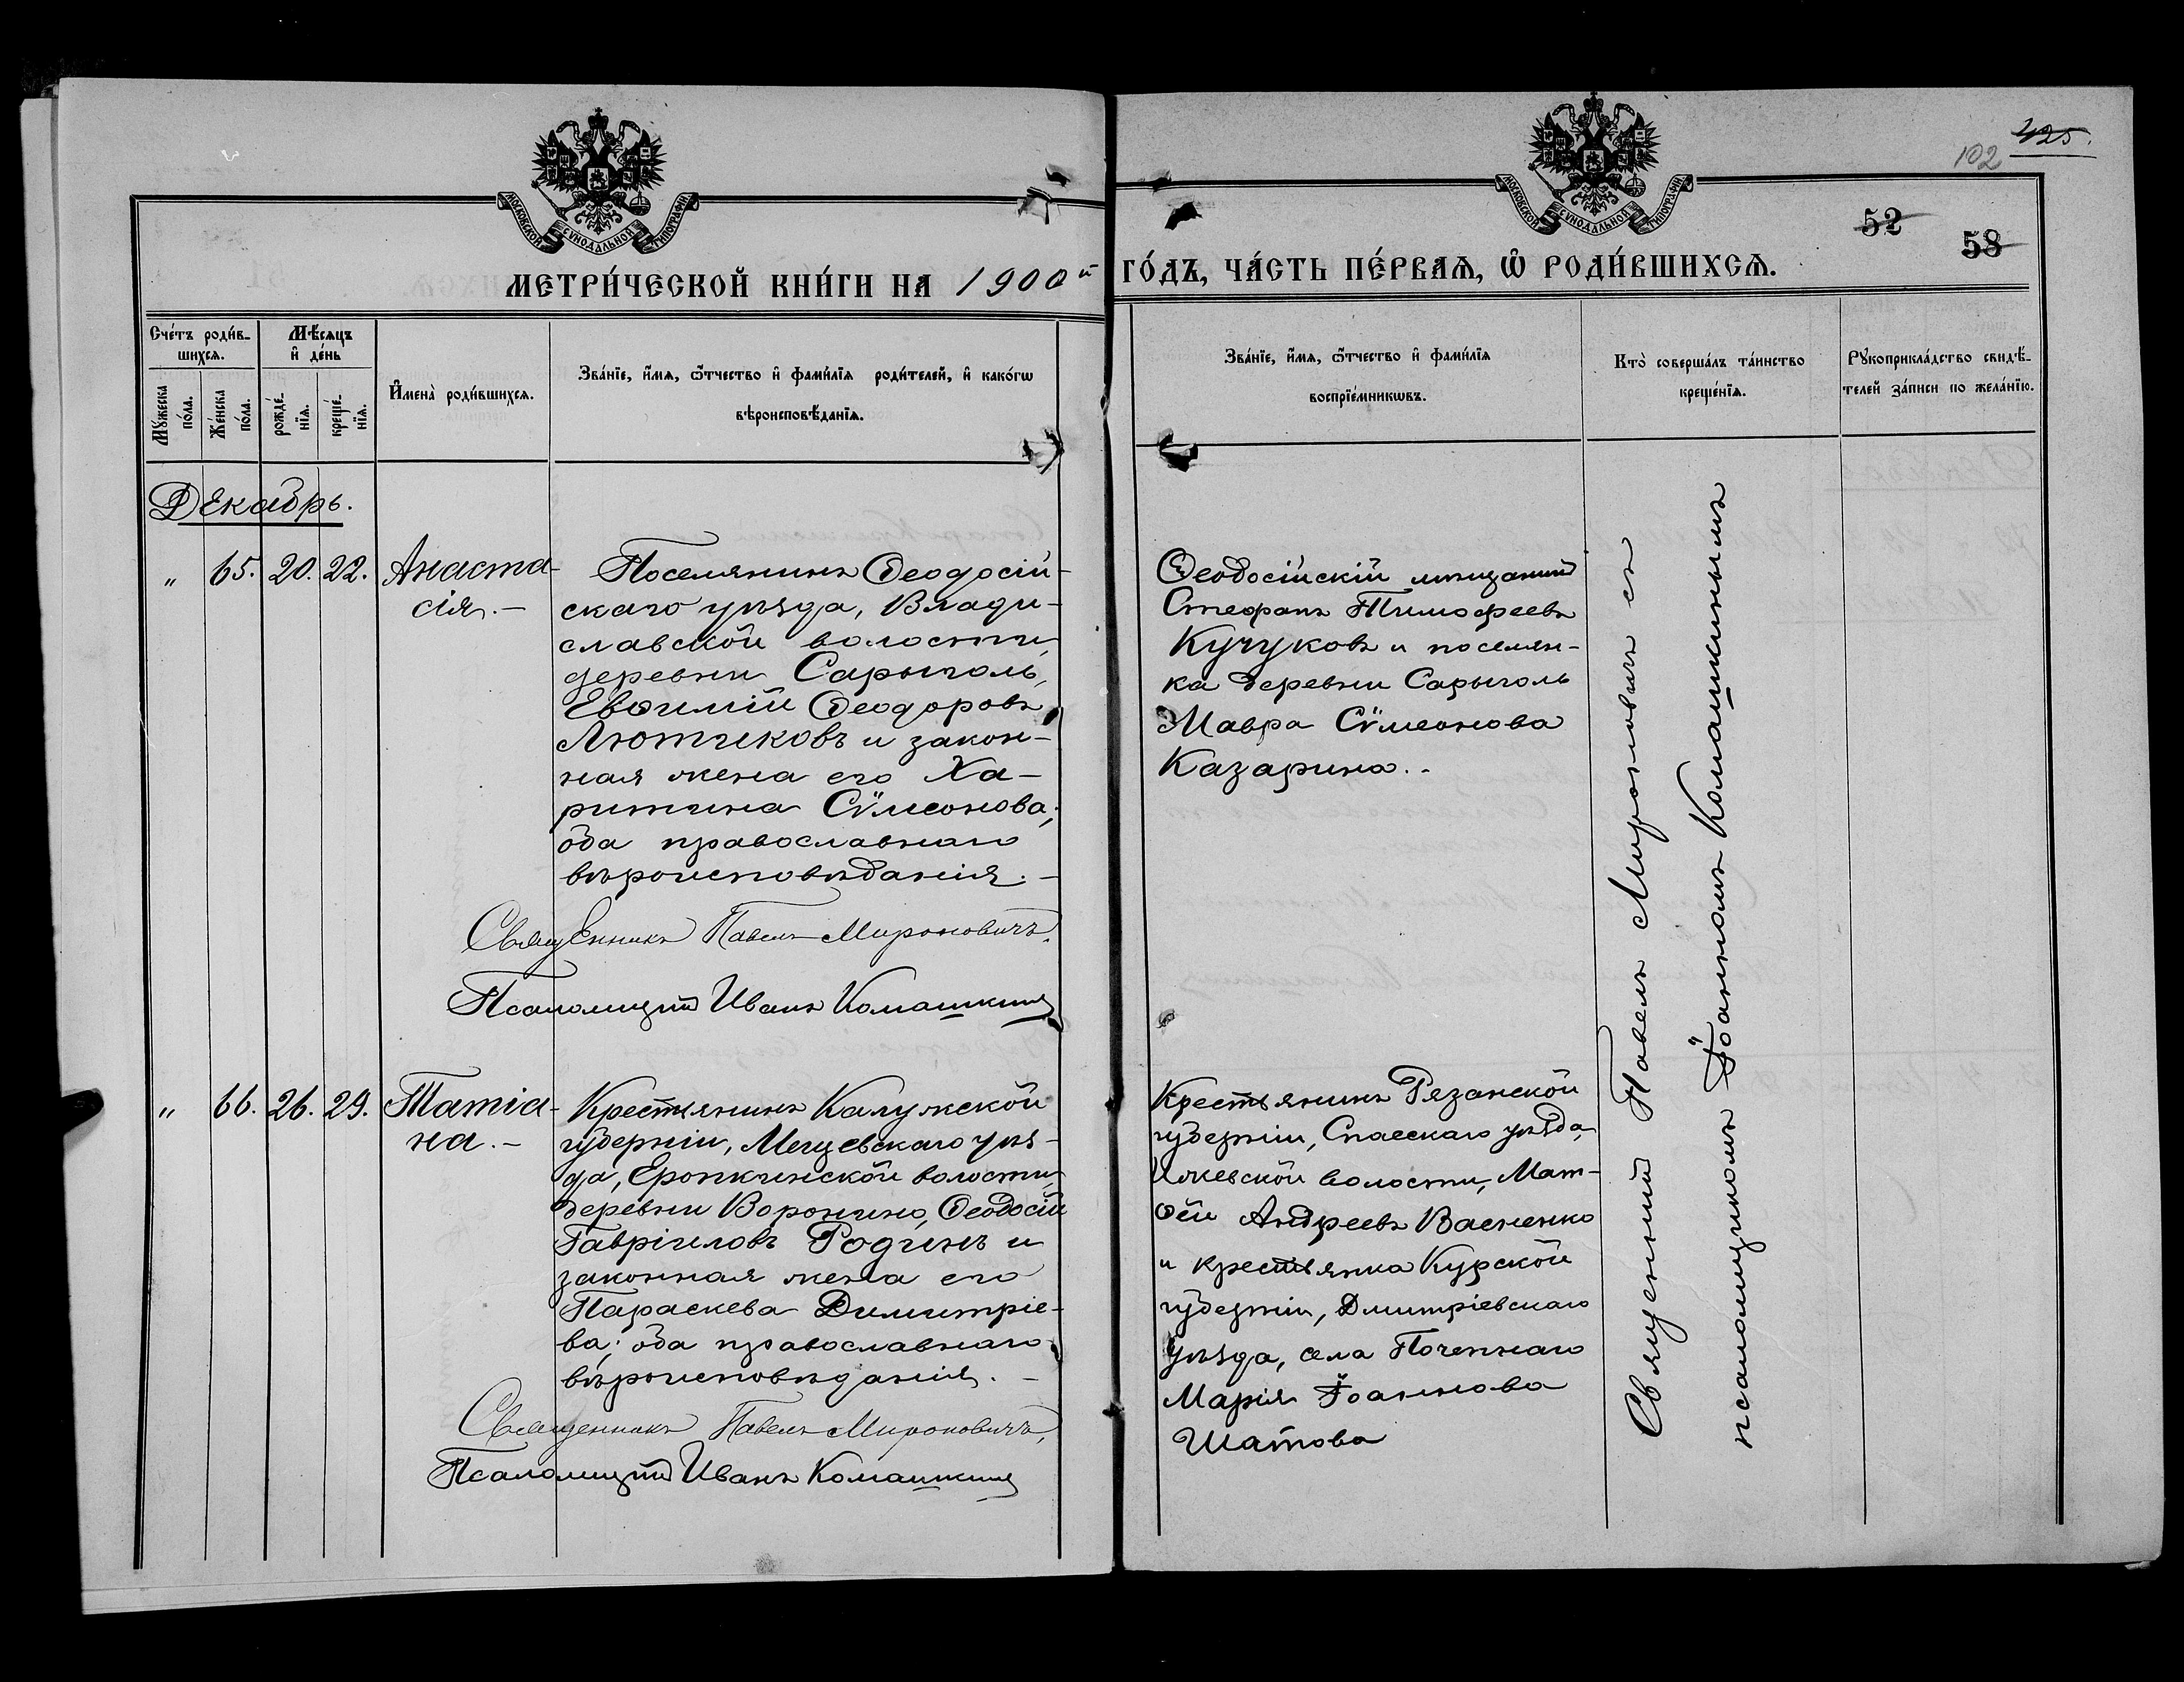 425.
102
52
58
МОСКОВСКОЙ СѴНОДАЛЬНОЙ ТИПОГРАФІИ
МОСКОВСКОЙ СѴНОДАЛЬНОЙ ТИПОГРАФІИ
МЕТРИ́ЧЕСКОЙ КНИ́ГИ НА 1900й ГО́ДЪ, ЧА́СТЬ ПЕ́РВАѦ, Ѽ РОДИ́ВШИХСѦ.
Сче́тъ роди́в-
шихсѧ.
Мꙋжеска
по́ла.
Же́нска
по́ла.
Мѣ́сѧцъ
и҆ де́нь
рожде́-
нїѧ.
креще́-
нїѧ.
И҆мена̀ роди́вшихсѧ.
Зва́нїе, и҆́мѧ, ѻ҆́тчество и҆ фами́лїѧ роди́телей, и҆ како́гѡ
вѣроисповѣ́данїѧ.
Зва́нїе, и҆́мѧ, ѻ҆́тчество и҆ фами́лїѧ
воспрїе́мникѡвъ.
Кто̀ соверша́лъ та́инство
креще́нїѧ.
Рꙋкоприкла́дство свидѣ́-
телей за́писи по жела́нїю.
Декабрь.
" 65. 20. 22. Анаста-
сія. -
Поселянинъ Ѳеодосій-
скаго уѣзда, Влади-
славской волости,
деревни Сарыголь,
Евѳимій Ѳеодоровъ
Лютиковъ и закон-
ная жена его Ха-
ритина Сѵмеонова;
оба православнаго
вѣроисповѣданія. -
Священникъ Павелъ Мироновичъ.
Псаломщикъ Иванъ Комашкинъ
Ѳеодосійскій мѣщанинъ
Стефанъ Тимофеевъ
Кучуковъ и поселян-
ка деревни Сарыголь
Мавра Сѵмеонова
Казарина. -
" 66. 26. 29. Татіа-
на. -
Крестьянинъ Калужской
губерніи, Мещевскаго уѣз-
да, Еропкинской волости,
деревни Воронино, Ѳеодосій
Гавріиловъ Родинъ и
законная жена его
Параскева Димитріе-
ва; оба православнаго
вѣроисповѣданія. -
Священникъ Павелъ Мироновичъ,
Псаломщикъ Иванъ Комашкинъ
Крестьянинъ Рязанской
губерніи, Спасскаго уѣзда,
Ижевской волости, Мат-
ѳей Андреевъ Васненко
и крестьянка Курской
губерніи, Дмитріевскаго
уѣзда, села Поченнаго
Марія Іоаннова
Шатова
Священникъ Павелъ Мироновичъ съ
псаломщикомъ Іоанномъ Комашкинымъ